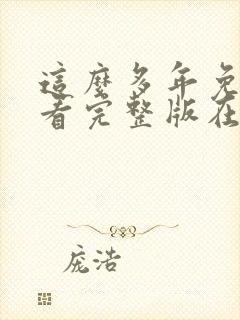 這麼多年免
看完整版在
庞浩